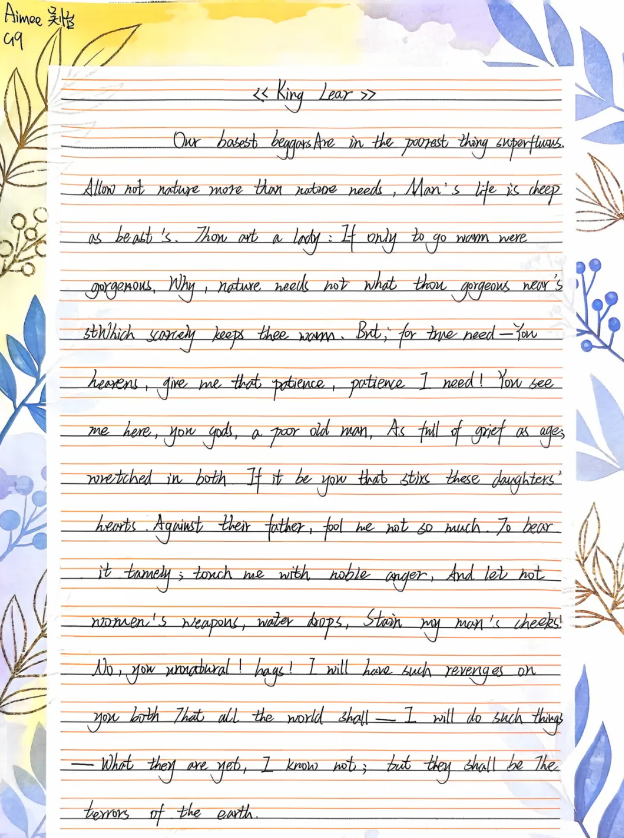 Aimee 吴怡
G9
<< King Lear >>
Our basest beggars Are in the poorest thing superfluous.
Allow not nature more than nature needs, Man's life is cheep
as beast's. Thou art a lady: If only to go warm were
gorgenous, Why, nature needs not what thou gorgeous near's
stWhich scarcely keeps thee warm. But; for true need — You
heavens, give me that patience, patience I need! You see
me here, you gods, a poor old man, As full of grief as age;
wretched in both If it be you that stirs these daughters'
hearts. Against their father, fool me not so much. To bear
it tamely; touch me with noble anger, And let not
women's weapons, water drops, Stain my man's cheeks!
No, you unnatural! hags! I will have such revenges on
you both That all the world shall — I will do such things
— What they are yet, I know not; but they shall be The
terrors of the earth.